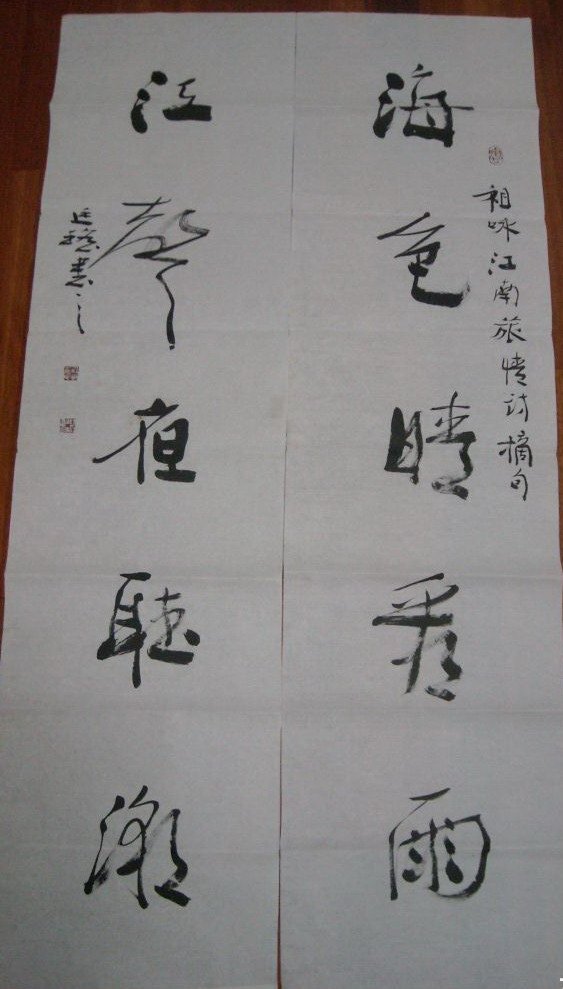 祖咏江南旅情诗摘句
海色晴看雨
江聲夜聽潮
書之